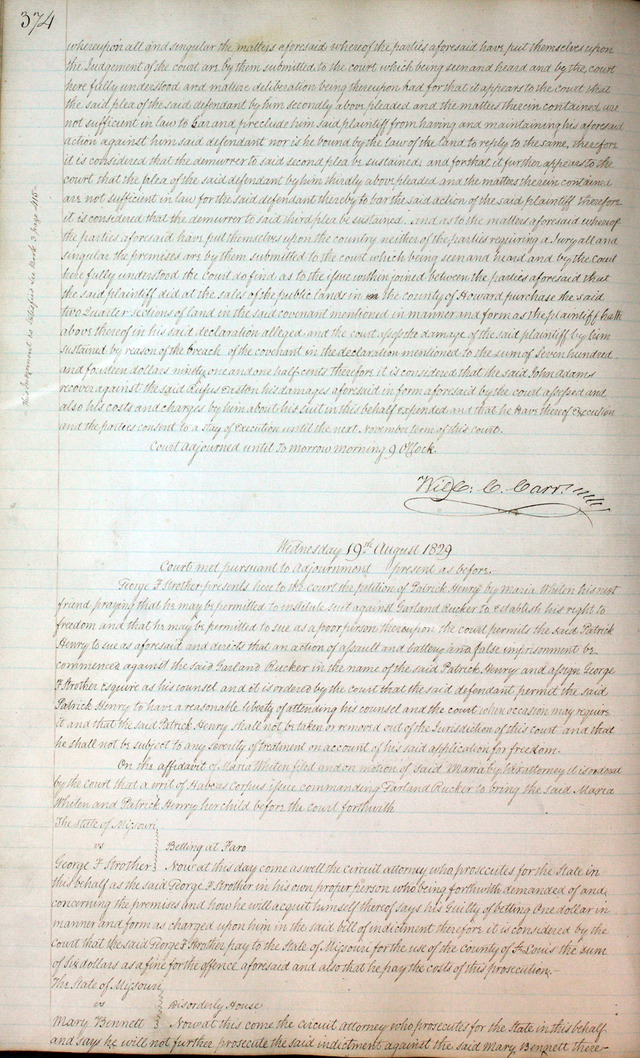 374
whereupon all and singular the matters aforesaid whereof the parties aforesaid have put themselves upon
the Judgement of the court are by them submitted to the court which being seen and heard and by the court
here fully understood and mature deliberation being thereupon had for that it appears to the court that
the said plea of the said defendant by him secondly above pleaded and the matters therein contained are
not sufficient in law to bar and preclude him said plaintiff from having and maintaining his aforesaid
action against him said defendant nor is he bound by the law of the land to reply to the same, therefore
it is considered that the demurrer to said second plea be sustained, and for that it further appears to the
court that the plea of the said defendant by him thirdly above pleaded and the matters therein contained
are not sufficient in law for the said defendant thereby to bar the said action of the said plaintiff Therefore
it is considered that the demurrer to said third plea be sustained. And as to the matters aforesaid whereof
the parties aforesaid have put themselves upon the country neither of the parties requiring a Jury all and
singular the premises are by them submitted to the court which being seen and heard and by the Court
here fully understood the court do find as to the issue within joined between the parties aforesaid that
the said plaintiff did at the sales of the public lands in the county of Howard purchase the said
two Quarter sections of land in the said covenant mentioned in manner and form as the plaintiff hath
above thereof in his said declaration alleged and the court assess the damage of the said plaintiff by him
sustained by reason of the breach of the covenant in the declaration mentioned to the sum of Seven hundred
and fourteen dollars ninety one and one half cents Therefore it is considered that the said John Adams
recover against the said Rufus Easton his damages aforesaid in form aforesaid by the court assessed and
also his costs and charges by him about his suit in this behalf expended and that he have thereof Execution
and the parties consent to a stay of execution until the next November term of this court.
Court Adjourned until To morrow morning 9 O'Clock.
This judgement is satisfied See Book 3 page
Wm. C. Carr
Wednesday 19th August 1829
Court met pursuant to Adjournment present as before.
George F Strother presents here to the court the petition of Patrick Henry by Maria Whiten his next
friend praying that he may be permitted to institute suit against Garland Rucker to establish his right to
freedom and that he may be permitted to sue as a poor person thereupon the court permits the said Patrick
Henry to sue as aforesaid and directs that an action of assault and battery and false imprisonment be
commenced against the said Garland Rucker in the name of the said Patrick Henry and assign George
F Strother Esquire as his counsel and it is ordered by the court that the said defendant permit the said
Patrick Henry to have a reasonable liberty of attending his counsel and the court when occasion may require
it and that the said Patrick Henry shall not be taken or removed out of the Jurisdiction of this court and that
he shall not be subject to any severity of treatment on account of his said application for freedom.
On the affidavit of Maria Whiten filed and on motion of said Maria by her attorney it is ordered
by the court that a writ of Habeas corpus issue commanding Garland Rucker to bring the said Maria
Whiten and Patrick Henry her child before the court forthwith
The state of Missouri
vs Betting at Faro
George F Strother Now at this day come as well the circuit attorney who prosecutes for the State in
this behalf as the said George F Strother in his own proper person who being forthwith demanded of and
concerning the premises and how he will acquit himself thereof says his Guilty of betting One dollar in
manner and form as charged upon him in the said bill of indictment therefore it is considered by the
court that the said George F Strother pay to the State of Missouri for the use of the county of St Louis the sum
of six dollars as a fine for the offence aforesaid and also that he pay the costs of this prosecution.
The State of Missouri
vs Disorderly House
Mary Bennett Now at this come the circuit attorney who prosecutes for the State in this behalf
and says he will not further prosecute the said indictment against the said Mary Bennett there